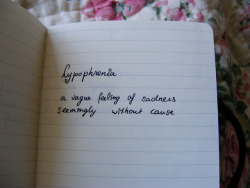 hypophrenia
a vague feeling of sadness
seemingly without cause